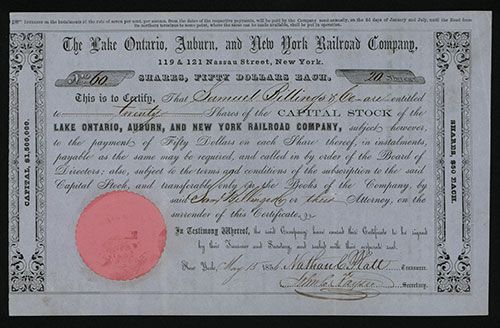 INTEREST on the instalments at the rate of seven per cent. per annum, from the dates of the respective payments, will be paid by the Company semi-annually, on the 1st days of January and July, until the Road from
its northern terminus to some point, where the same can be made available, shall be put in operation.
The Lake Ontario, Auburn, and New York Railroad Company,
119 & 121 Nassau Street, New York.
No. 60 SHARES, FIFTY DOLLARS EACH. 20 Shares
This is to Certify, That Samuel Pillings & Co are entitled
to twenty Shares of the CAPITAL STOCK of the
LAKE ONTARIO, AUBURN, AND NEW YORK RAILROAD COMPANY, subject however,
to the payment of Fifty Dollars on each Share thereof, in instalments,
payable as the same may be required, and called in by order of the Board of
Directors; also, subject to the terms and conditions of the subscription to the said
Capital Stock, and transferable only on the Books of the Company, by
said or their Attorney, on the
surrender of this Certificate.
In Testimony Whereof, the said Company have caused this Certificate to be signed
by their Treasurer and Secretary, and sealed with their corporate seal.
New York, May 15 185 Nathan C. Platt Treasurer.
Secretary.
CAPITAL, $1,500,000.
SHARES, $50 EACH.